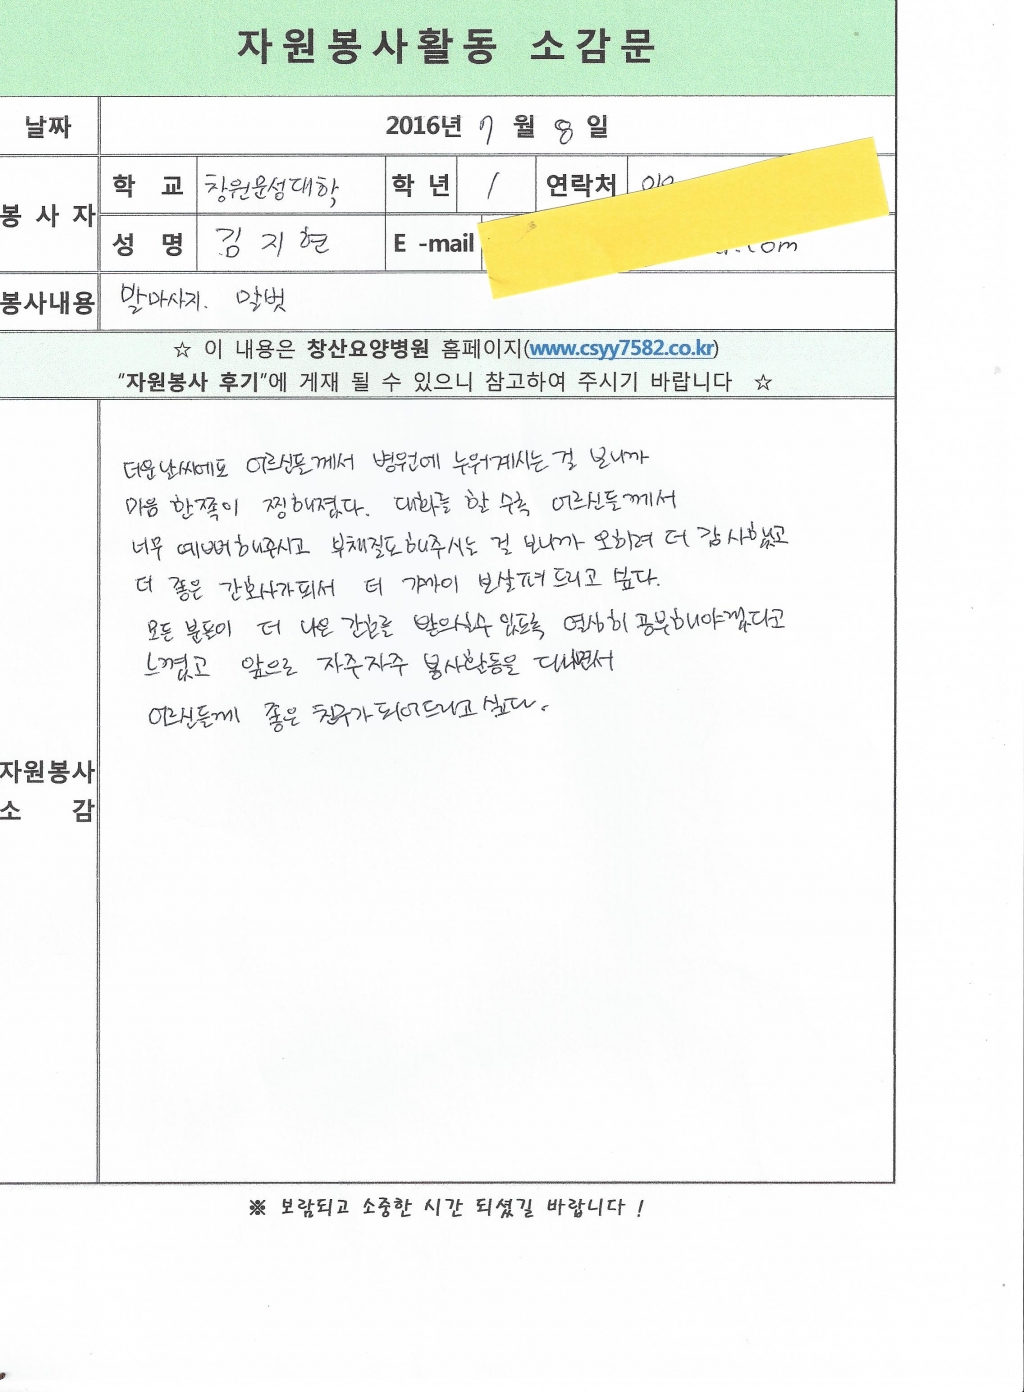 자원봉사활동 소감문
날짜 2016년 7월 8일
봉사자 학 교 창원문성대학 학년 1 연락처 010
성 명 김지현 E-mail .com
봉사내용 발마사지. 말벗
☆ 이 내용은 창산요양병원 홈페이지(www.csyy7582.co.kr)
"자원봉사 후기"에 게재 될 수 있으니 참고하여 주시기 바랍니다 ☆
자원봉사
소 감
더운날씨에도 어르신들께서 병원에 누워계시는 걸 보니까
마음 한쪽이 찡해졌다. 대화를 할 수록 어르신들께서
너무 예뻐해주시고 부채질도해주시는 걸 보니까 오히려 더 감사했고
더 좋은 간호사가되서 더 가까이 보살펴드리고 싶다.
모든 분들이 더 나은 간호를 받으실수 있도록 열심히 공부해야겠다고
느꼈고 앞으로 자주자주 봉사활동을 다니면서
어르신들께 좋은 친구가 되어드리고 싶다.
※ 보람되고 소중한 시간 되셨길 바랍니다 !